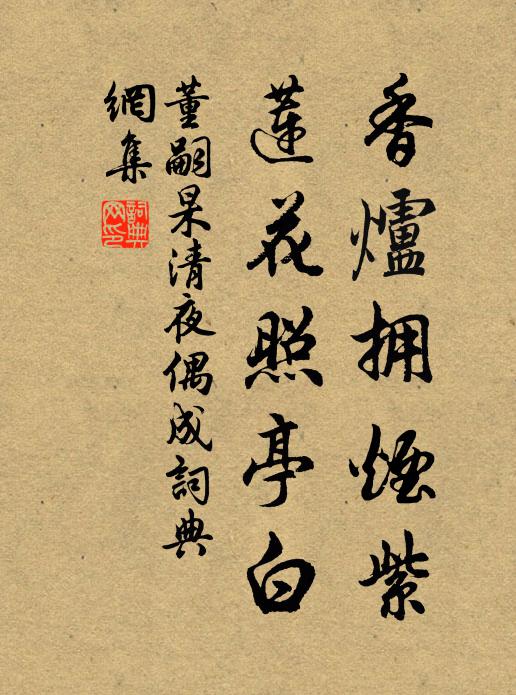 香爐拥煙紫
蓮花照亭白
董嗣杲清夜偶成詞典
網集
詞典網印